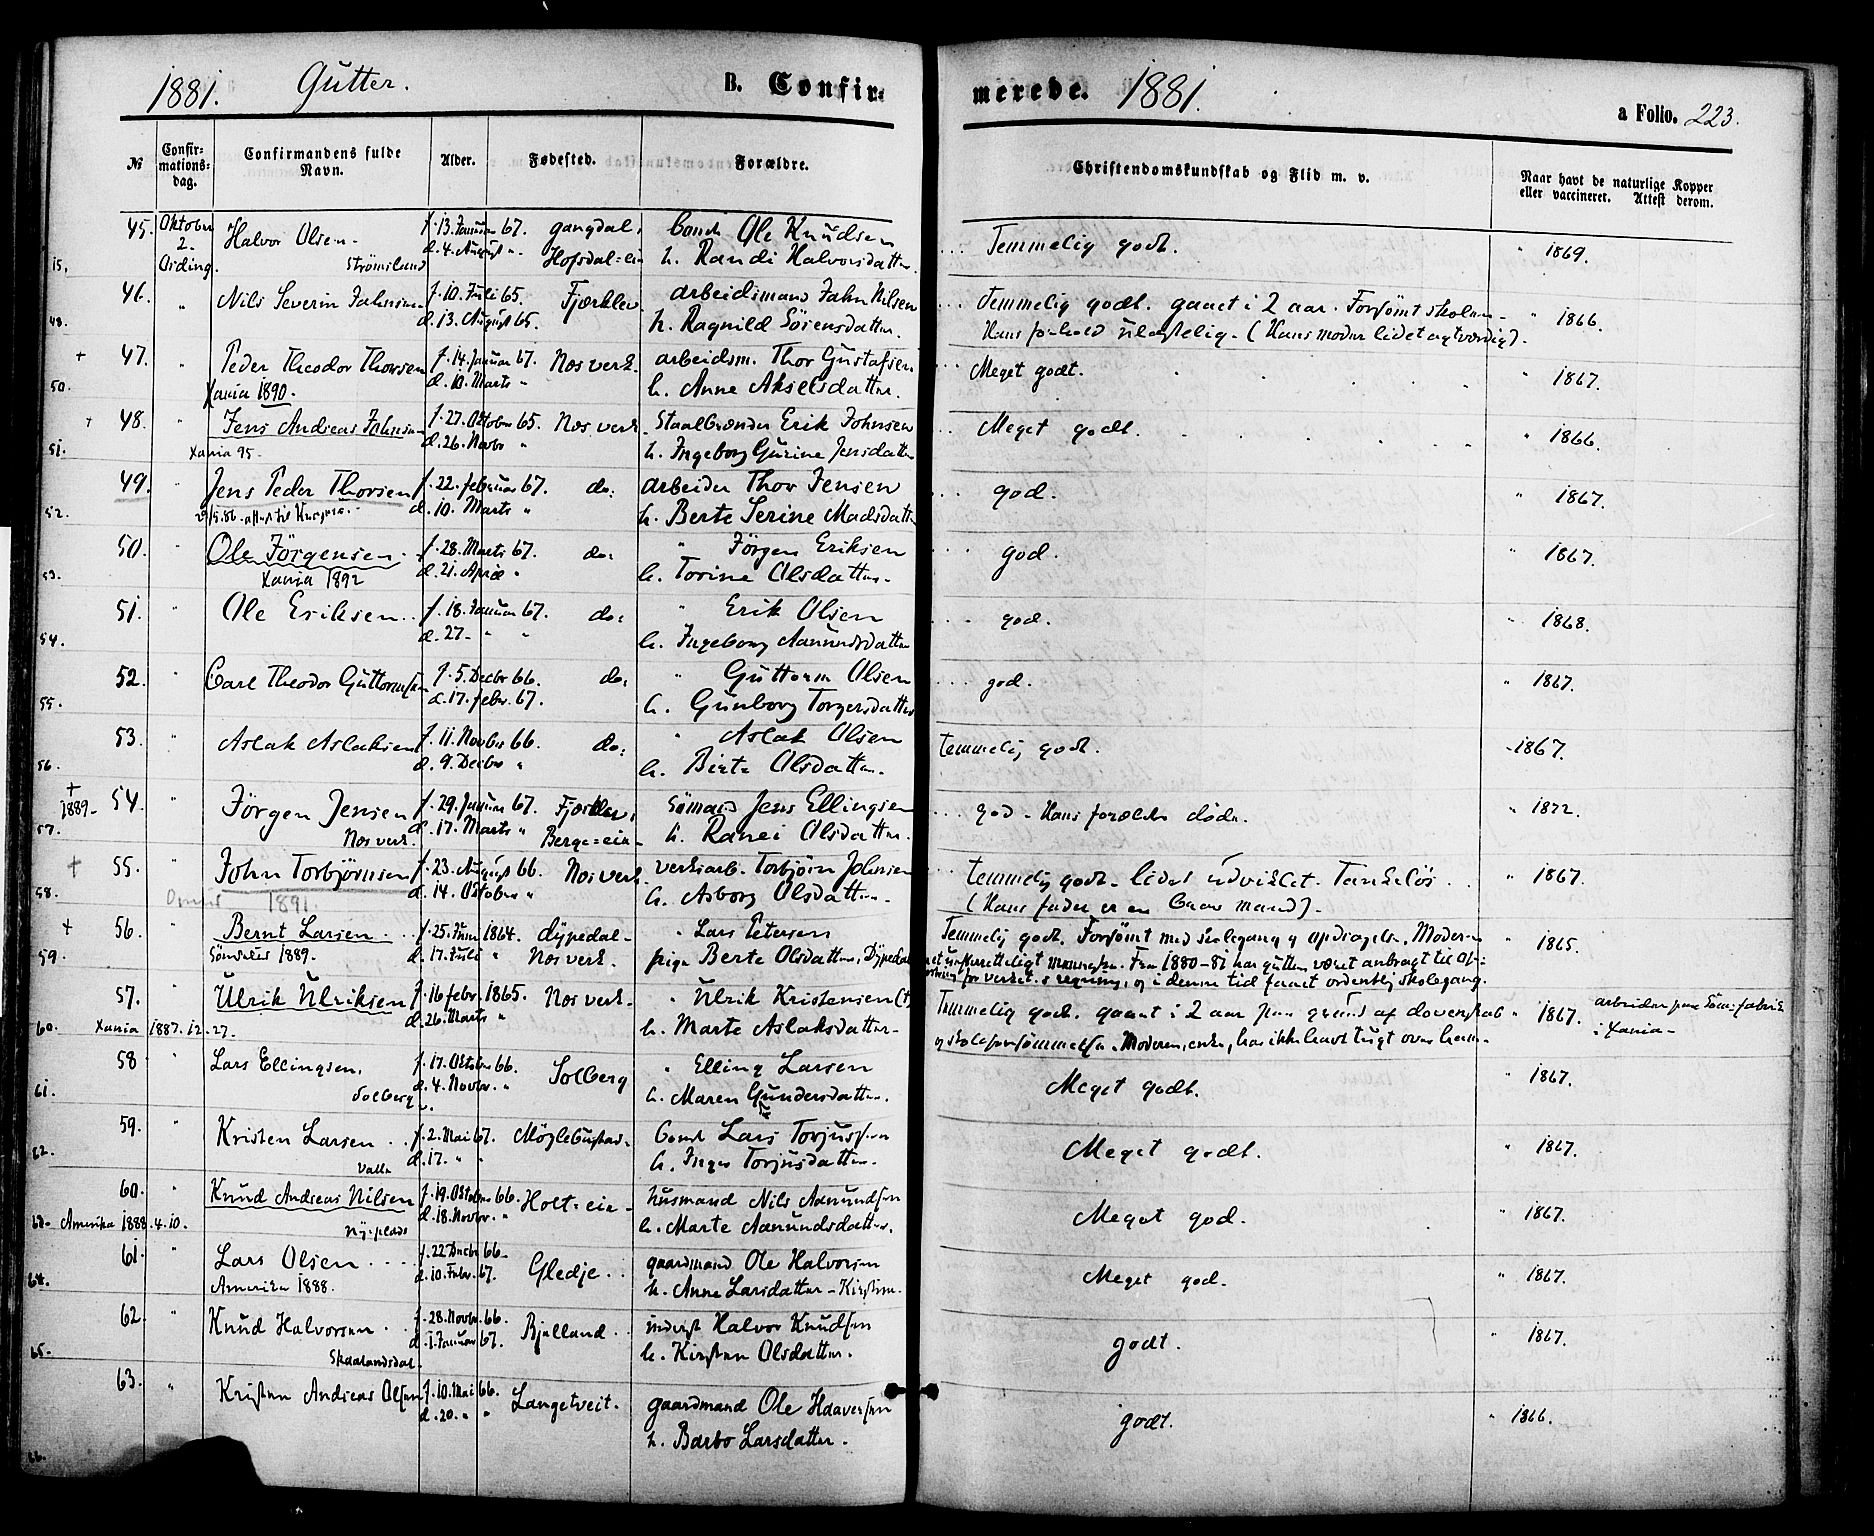 1881. Gutter. B. Confir-
merede. 1881. a Folio. 223.
№ Confir-mations-dag. Confirmandens fulde Navn. Alder. Fødested. Forældre. Christendomskundskab og Flid m. v. Naar havt de naturlige Kopper eller vaccineret. Attest derom.
45. Oktober f. 13. Januar 67. gangdal, bonde Ole Knudsen
2. Halvor Olsen. d. 4. August ". Hofsdal-eie h. Randi Halvorsdatter. Temmelig godt. " 1869.
15. Strömsland
46. " Nils Severin Jahnsen f. 10. Juli 65. Fjærkleiv arbeidsmand Jahn Nilsen Temmelig godt. gaaet i 2 aar. Forsömt skolen.
48. d. 13. August 65. h. Ragnild Sörensdatter. Hans forhold ulastelig. (Hans moder lidet agtværdig). " 1866.
+ 47. " Peder Theodor Thorsen f. 14. Januar 67. Nes verk. arbeidsm. Thor Gustafsen Meget godt.
50. Xania 1890. d. 10. Marts " h. Anne Akselsdatter. " 1867.
+ 48. " Jens Andreas Jahnsen f. 27. Oktober 65. Nes verk. Staalbrænder Erik Johnsen Meget godt. " 1866.
51. Xania 95. d. 26. Novbr " h. Ingeborg Gurine Jensdatter
49. " Jens Peder Thorsen f. 22. februar 67. do: arbeider Thor Jensen god. " 1867.
52. d. 10. Marts " h. Berte Serine Madsdatter
50. " Ole Jörgensen. f. 28. Marts 67. do: " Jörgen Eriksen god. " 1867.
53. Xania 1892 d. 21. April " h. Torine Olsdatter.
51. " Ole Eriksen. f. 18. Januar 67. do: " Erik Olsen god. " 1868.
54. d. 27. " " h. Ingeborg Aanundsdatter
52. " Carl Theodor Guttormsen f. 5. Decbr 66. do: " Guttorm Olsen god. " 1867.
55. d. 17. febr. 67. h. Gunborg Torgersdatter
53. " Aslak Aslaksen f. 11. Novber 66. do: " Aslak Olsen Temmelig godt. " 1867.
56. d. 9. Decber " h. Birte Olsdatter.
+ 1889. 54. " Jörgen Jensen f. 29. Januar 67. Fjærkleiv, Sömand Jens Ellingsen god. Hans forældre döde. " 1872.
57. Nes verk. d. 17. Marts " Berge-eie. h. Ranei Olsdatter.
+ 55. " John Torbjörnsen f. 23. August 66. Nes verk. verksarb. Torbjörn Johnsen Temmelig godt. lidet udviklet. Tankelös. " 1867.
58. 1891. d. 14. Oktober " h. Asborg Olsdatter. (Hans fader er en brav mand).
+ 56. Bernt Larsen. f. 25. Juni 1864. dypedal- " Lars Petersen Temmelig godt. Forsömt med skolegang og opdragelse. Moderen
59. Söndeled 1889. d. 17. Juli " Nes verk. pige Berte Olsdatter, Dypedal et uefterretteligt menneske. Fra 1880-81 har gutten været anbragt til op-
fostring for verkets regning, og i denne tid faaet ordentlig skolegang. " 1865.
57. " Ulrik Ulriksen f. 16 febr. 1865. Nes verk. " Ulrik Kristensen (+) Temmelig godt. gaaet i 2 aar paa grund af dovenskab " 1867. arbeider paa Söm-fabrik
60. Xania 1887. 12. 27. d. 26. Marts " h. Marte Aslaksdatter. og skoleforsömmelse. Moderen, enke, har ikke havt tugt over ham. i Xania.
58 " Lars Ellingsen, f. 17. Oktober 66. Solberg " Elling Larsen Meget godt. " 1867.
61. Solberg d. 4. Novbr. " h. Maren Gundersdatter.
59. " Kristen Larsen f. 2. Mai 67. Möglebustad. bonde Lars Torjussen Meget godt. " 1867.
62. Valle d. 17. " " h. Inger Torjusdatter.
60. " Knud Andreas Nilsen f. 19. Oktober 66. Holt-eie. husmand Nils Aanundsen Meget god. " 1867.
63. Amerika 1888. 4. 10. Ny-plads d. 18. Novbr. " h. Marte Aanundsdatter.
61. " Lars Olsen f. 22 Decbr 66. Gledje gaardmand Ole Halvorsen Meget god. " 1867.
64. Amerika 1888. d. 10. Febr. 67. h. Anne Larsdatter - Kirstine.
62. " Knud Halvorsen f. 28. Novbr. 66. Bjelland inderst Halvor Knudsen godt. " 1867.
65. Skaalandsdal. d. 1. Januar 67. h. Kirsten Olsdatter.
63. " Kristen Andreas Olsen f. 10. Mai 66. Langetveit. gaardmand Ole Haaversen godt. " 1866.
66. d. 20. " " h. Barbo Larsdatter.